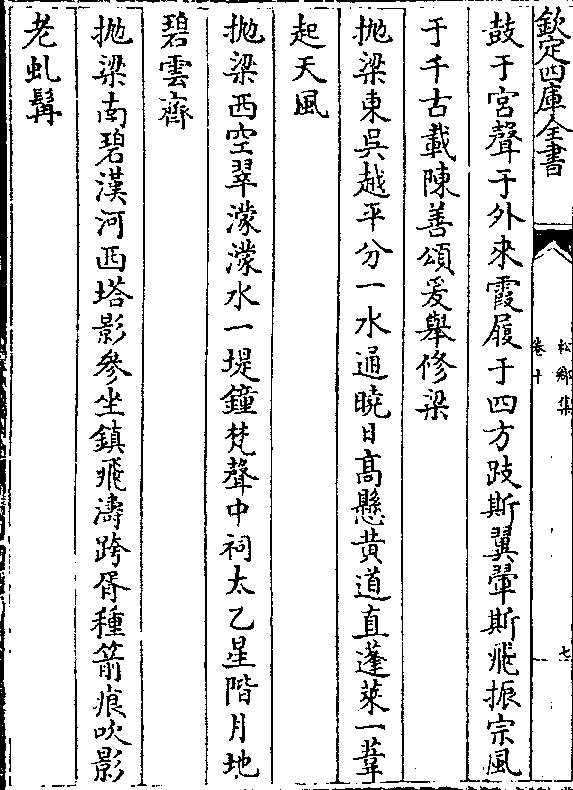 欽定四庫全書
松鄉集
卷十
七
鼓于宮聲于外來霞履于四方跂斯翼翬斯飛振宗風
于千古載陳善頌爰舉修梁
拋梁東吳越平分一水通曉日高懸黄道直蓬萊一葦
起天風
拋梁西空翠濛濛水一堤鐘梵聲中祠太乙星階月地
碧雲齊
拋梁南碧漢河西塔影參坐鎮飛濤跨胥種箭痕吹影
老虬髯